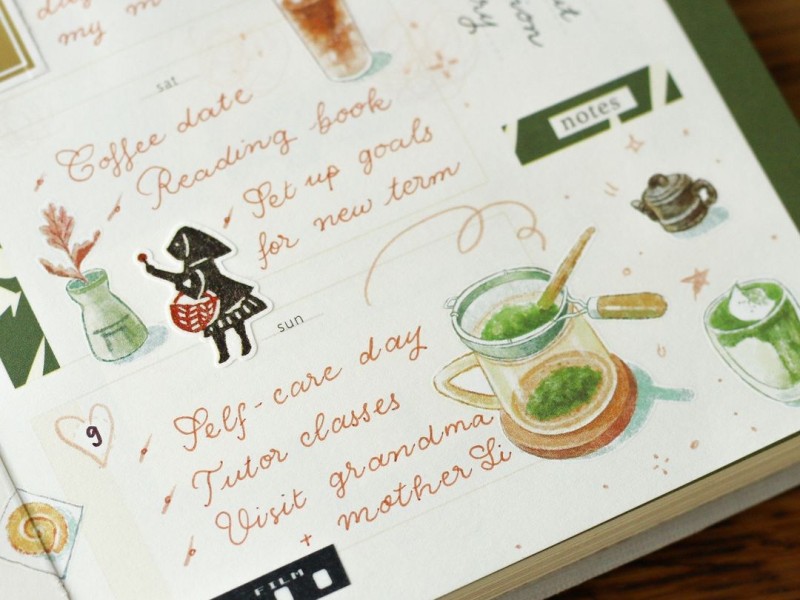 my m
sat
Coffee date
Reading book
Set up goals
for new term
notes
sun
9
Self-care day
Tutor classes
Visit grandma
+ mother Li
FILM